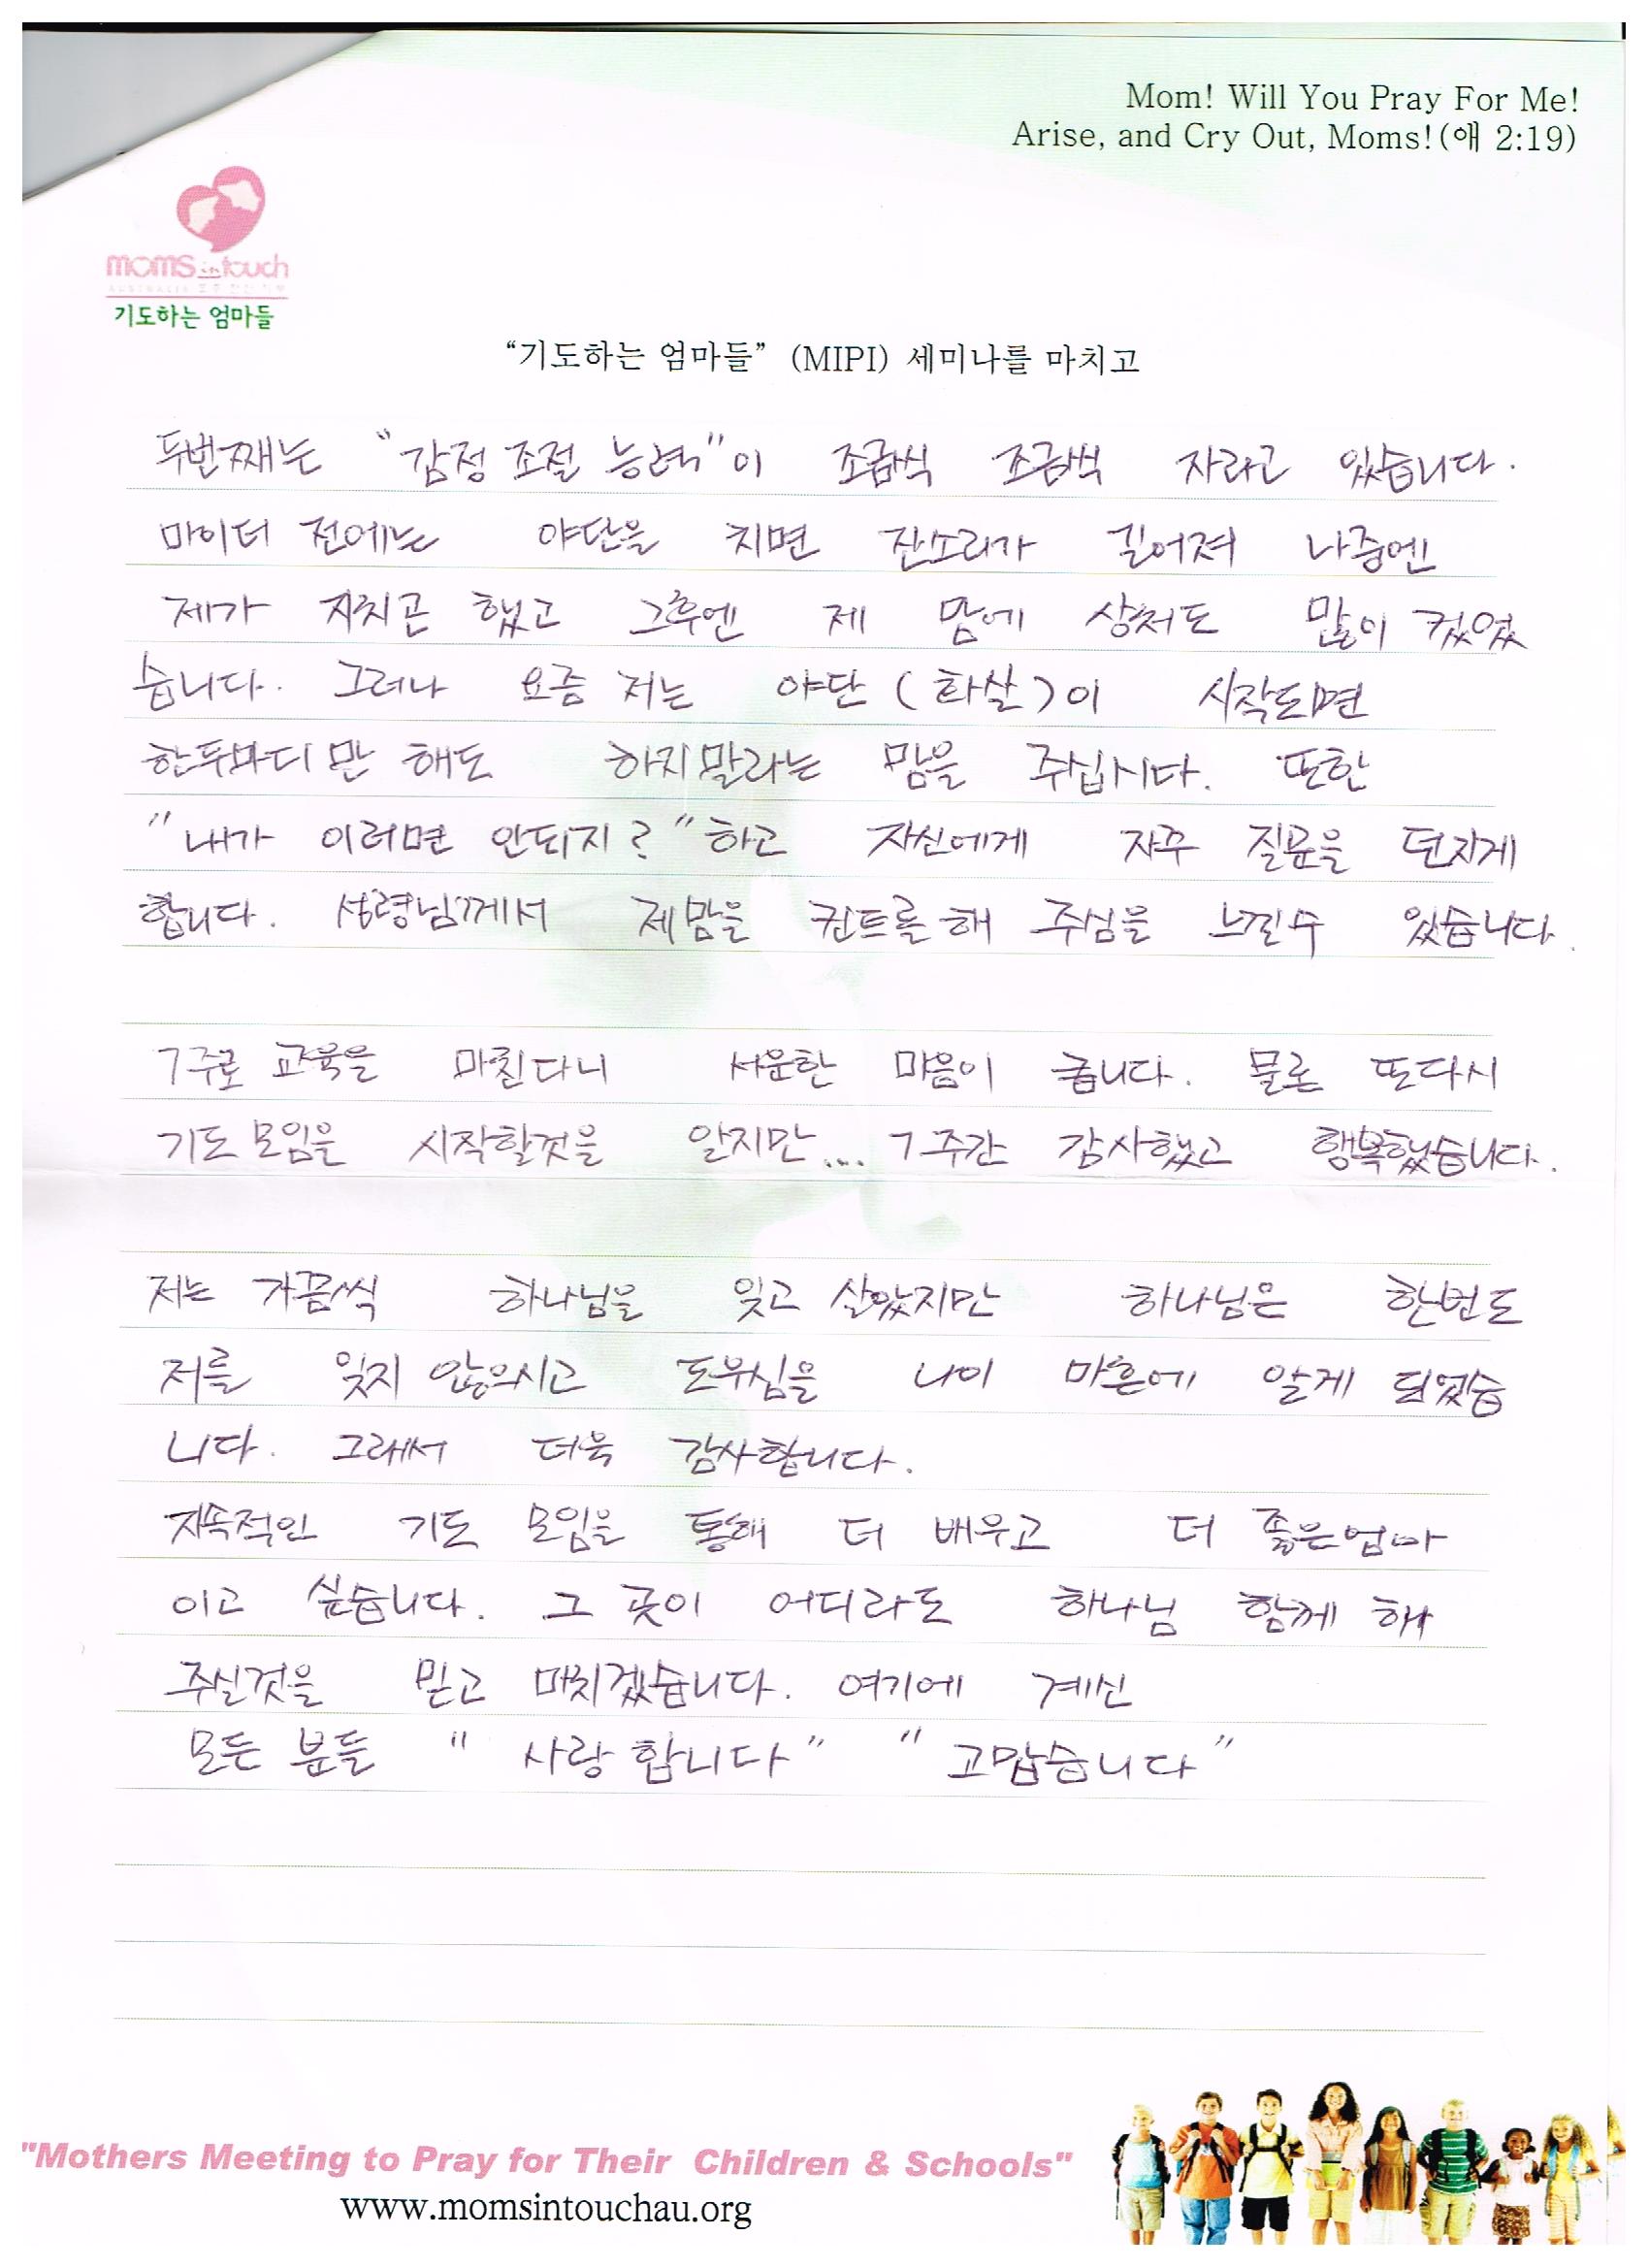 Mom! Will You Pray For Me!
Arise, and Cry Out, Moms!(애 2:19)
moms in touch
기도하는 엄마들
“기도하는 엄마들” (MIPI) 세미나를 마치고
두번째는 "감정 조절 능력"이 조금씩 조금씩 자라고 있습니다.
마이터 전에는 야단을 치면 잔소리가 길어져 나중엔
제가 지치곤 했고 그후엔 제 맘에 상처도 많이 컸었
습니다. 그러나 요즘 저는 야단(화살)이 시작되면
한두마디만 해도 하지말라는 맘을 주십시다. 또한
"내가 이러면 안되지?" 하고 자신에게 자주 질문을 던지게
합니다. 성령님께서 제맘을 컨트롤해 주심을 느낄수 있습니다.
7주로 교육을 마친다니 서운한 마음이 큽니다. 물론 또다시
기도모임을 시작할것을 알지만... 7주간 감사했고 행복했습니다.
저는 가끔씩 하나님을 잊고 살았지만 하나님은 한번도
저를 잊지 않으시고 도우심을 나이 마흔에 알게 되었습
니다. 그래서 더욱 감사합니다.
지속적인 기도 모임을 통해 더 배우고 더 좋은엄마
이고 싶습니다. 그 곳이 어디라도 하나님 함께 해
주실것을 믿고 마치겠습니다. 여기에 계신
모든 분들 "사랑합니다" "고맙습니다"
"Mothers Meeting to Pray for Their Children & Schools"
www.momsintouchau.org